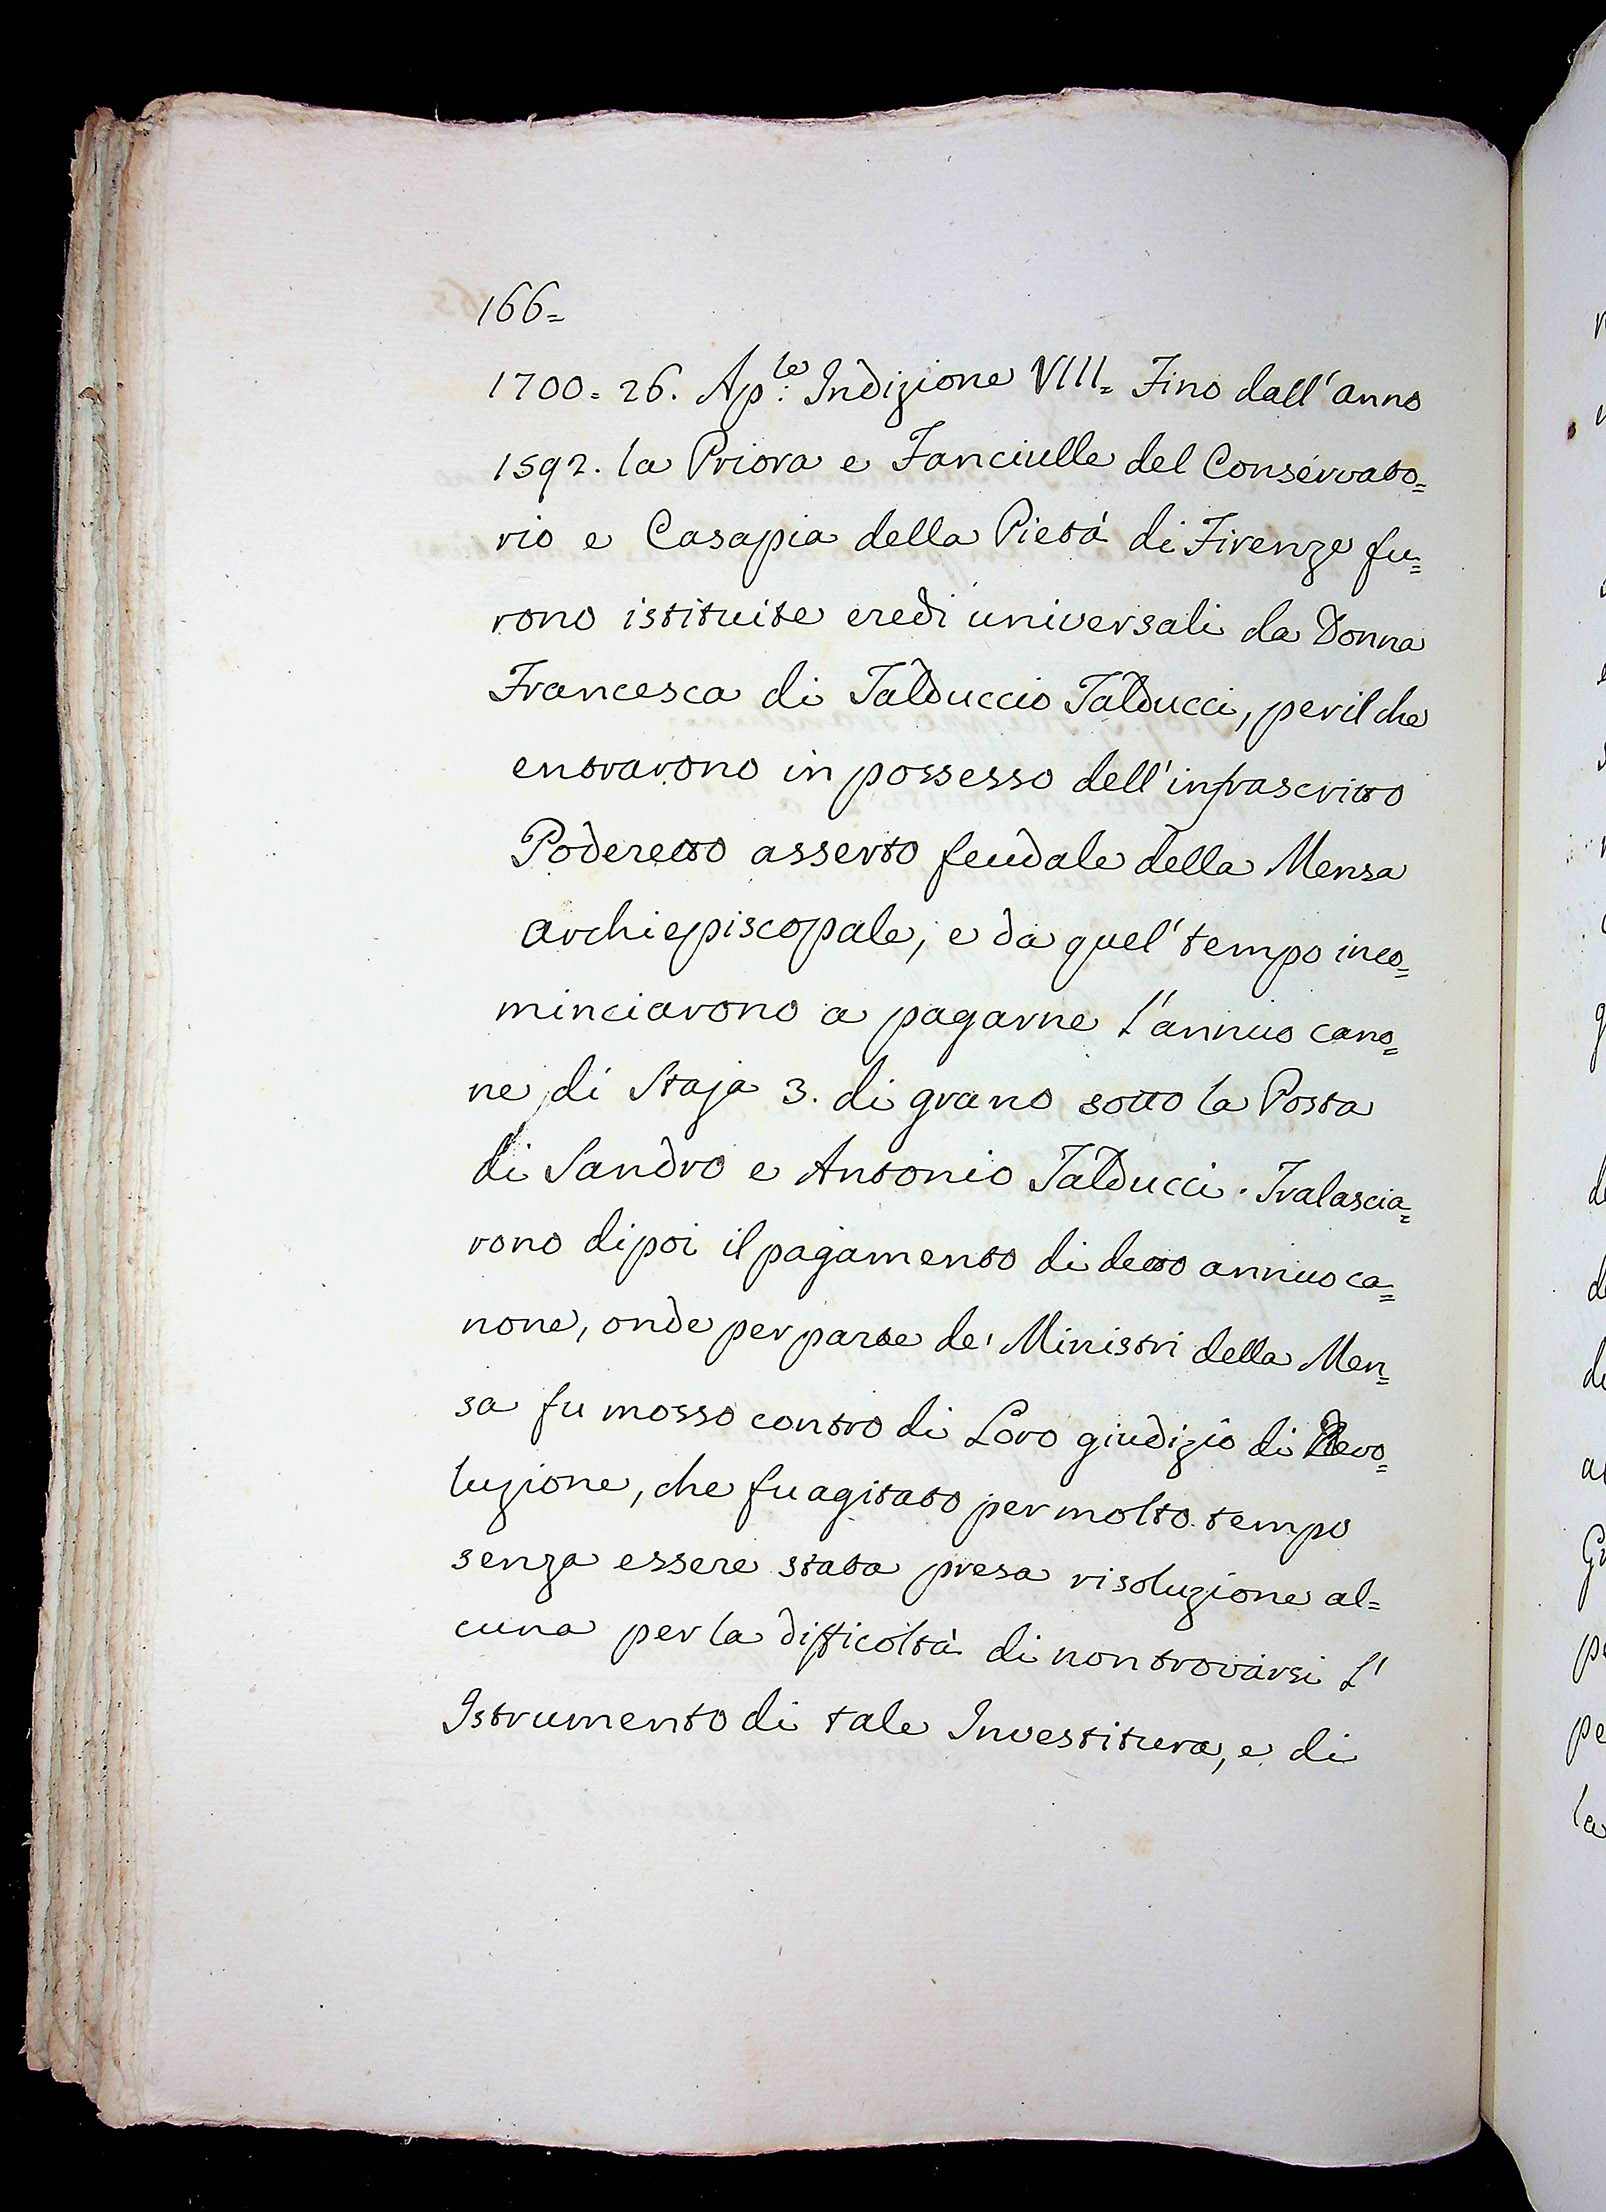 166=
1700= 26. Ap:le Indizione VIII= Fino dall'anno
1592. la Priora e Fanciulle del Conservato=
rio e Casapia della Pietá di Firenze fu=
rono istituite eredi universali da Donna
Francesca di Talduccio Talducci, per il che
entrarono in possesso dell'infrascritto
Poderetto asserto feudale della Mensa
archiepiscopale, e da quel' tempo inco=
minciarono a pagarne l'annuo cano=
ne di Staja 3. di grano sotto la Posta
di Sandro e Antonio Talducci. Tralascia=
rono dipoi il pagamento di detto annuo ca=
none, onde per parte de' Ministri della Men=
sa fu mosso contro di Loro giudizio di Devo=
luzione, che fu agitato per molto tempo
senza essere stata presa risoluzione al=
cuna per la difficoltà di non trovarsi L'
Istrumento di tale Investitura, e di